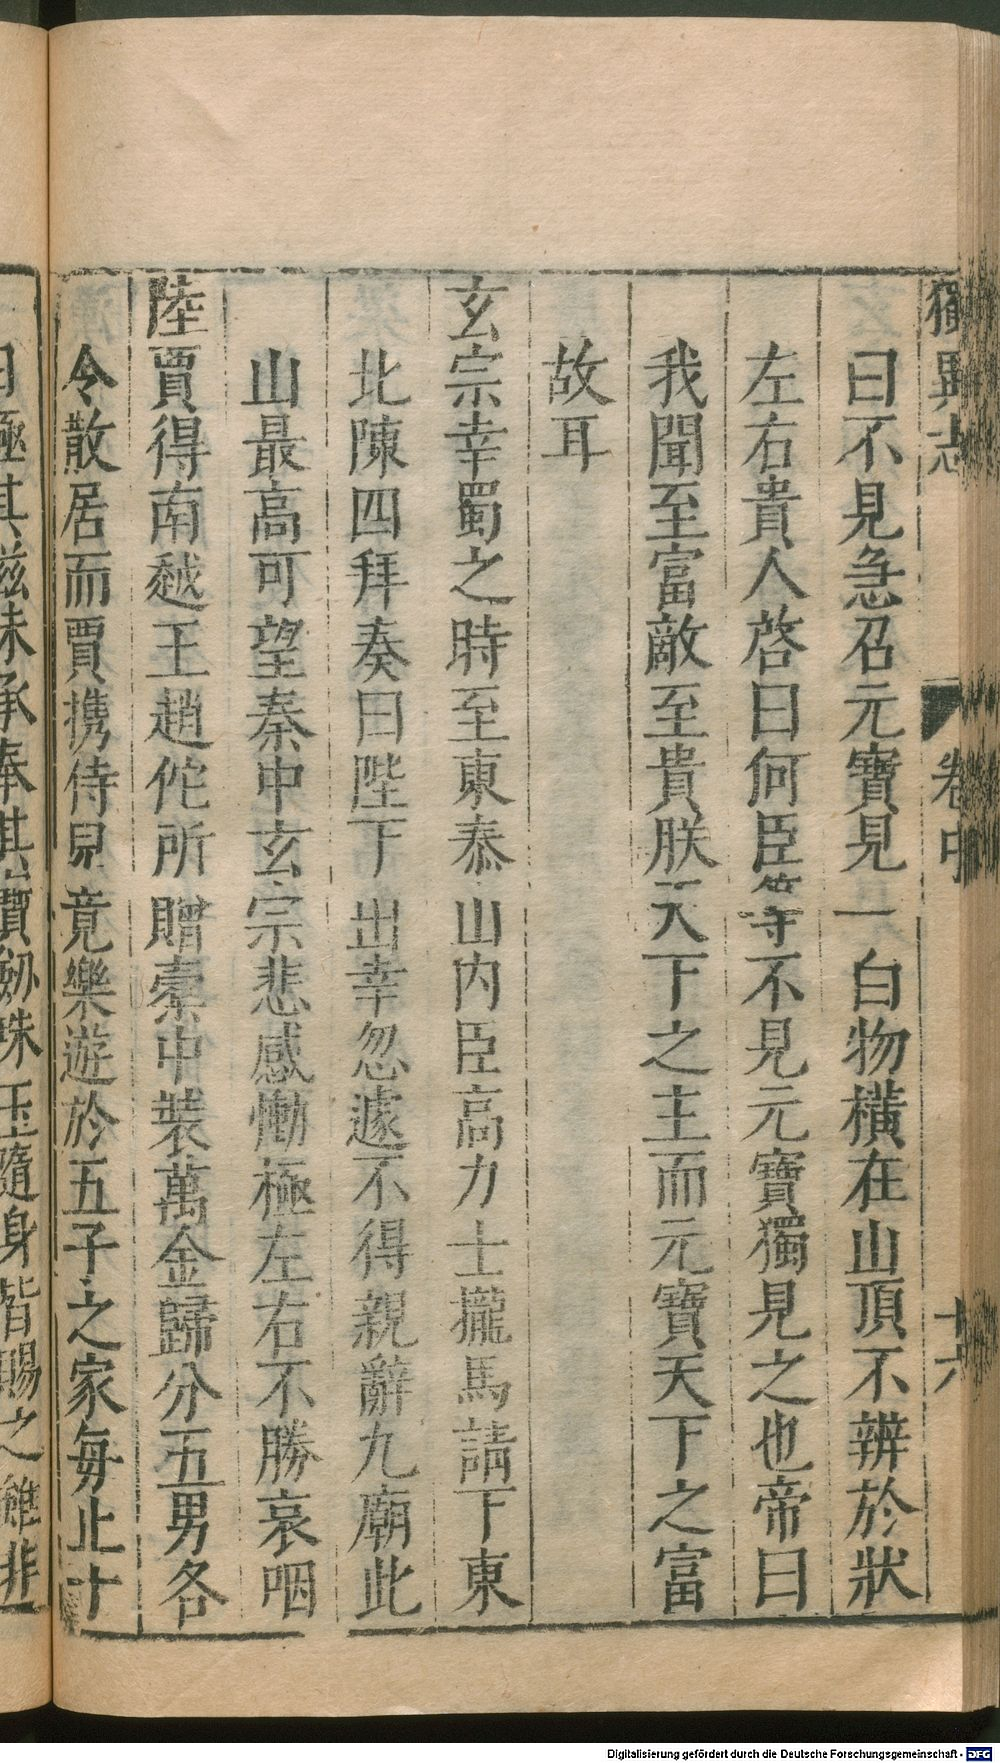 獨異志 卷中 十六
曰不見急召元寶見一白物橫在山頂不辨於狀
左右貴人啓曰何臣等不見元寶獨見之也帝曰
我聞至富敵至貴朕天下之主而元寶天下之富
故耳
玄宗幸蜀之時至東泰山内臣高力士攏馬請下東
北陳四拜奏曰陛下出幸忽遽不得親辭九廟此
山最高可望秦中玄宗悲感慟極左右不勝哀咽
陸賈得南越王趙佗所贈橐中裝萬金歸分五男各
令散居而賈携侍兒竟樂遊於五子之家每止十
日極其滋味承奉其寶劔珠玉隨身皆賜之雖非
Digitalisierung gefördert durch die Deutsche Forschungsgemeinschaft - DFG